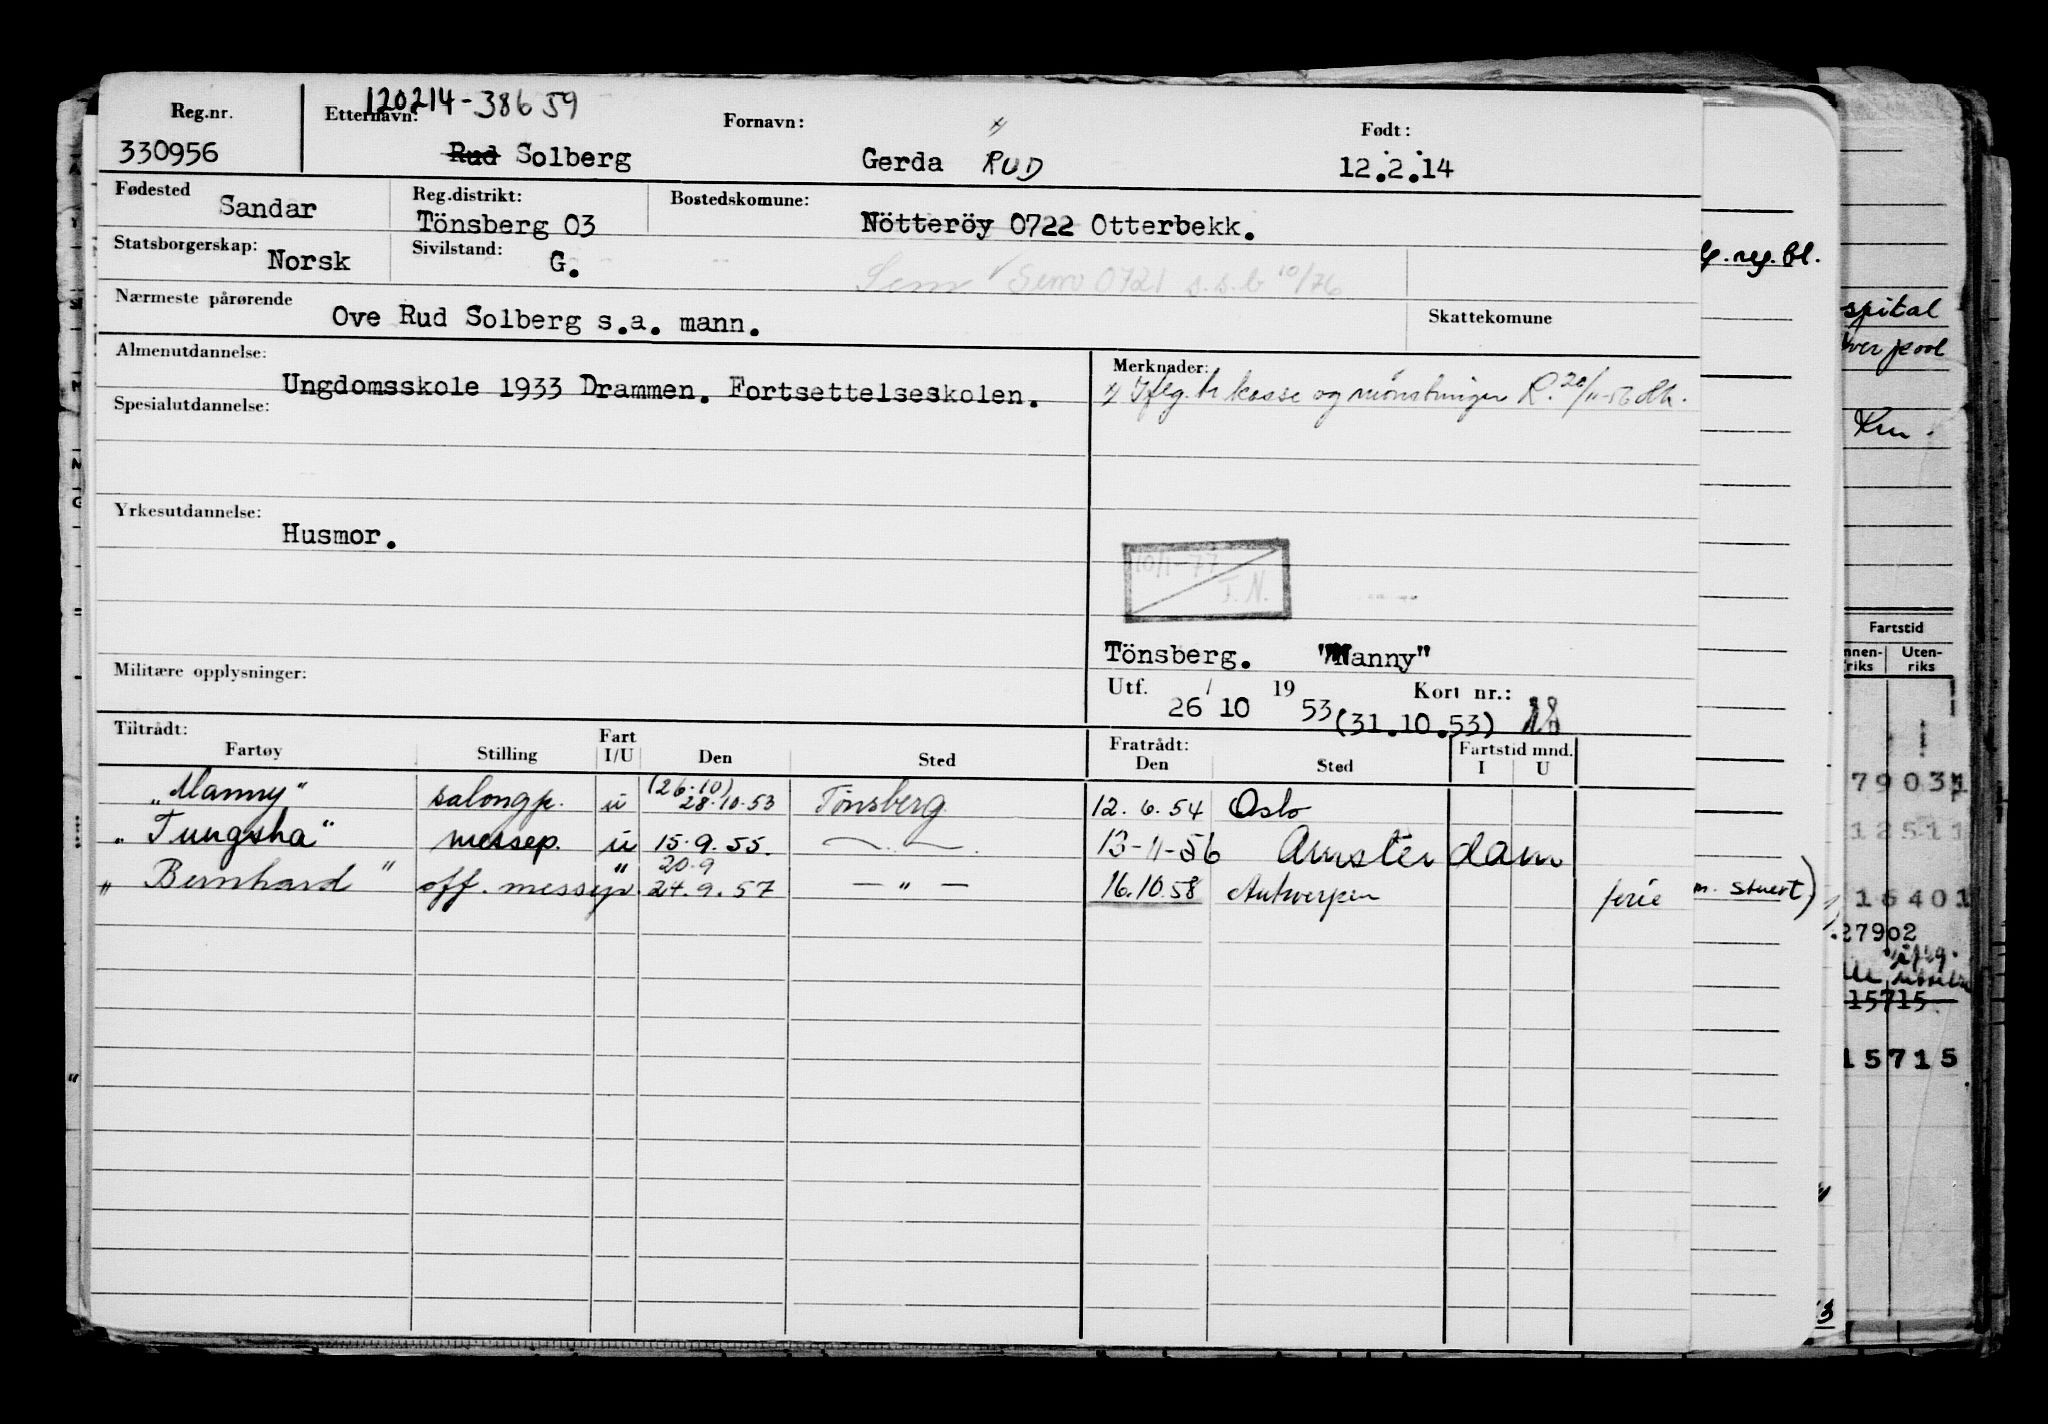 120214-38659
Reg.nr. Etternavn: Fornavn: Født:
330956 Rud Solberg Gerda RUD 12.2.14
Fødested Sandar Reg.distrikt: Tönsberg 03 Bostedskomune: Nötteröy 0722 Otterbekk.
Statsborgerskap: Norsk Sivilstand: G.
Sem Sem 0721 s.s.b 10/76
Nærmeste pårørende Ove Rud Solberg s.a. mann. Skattekomune
Almenutdannelse: Ungdomsskole 1933 Drammen. Fortsettelseskolen.
Merknader:
x) Iflg. tr kasse og mønstringer R. 20/11-56
Spesialutdannelse:
Yrkesutdannelse: Husmor.
10/1-77
T.N.
Tönsberg. "Nanny"
Militære opplysninger:
Utf. 26/10 1953 (31.10.53) Kort nr.: 28
Tiltrådt: Fratrådt: Fartstid mnd.
Fartøy Stilling Fart I/U Den Sted Den Sted I U
"Nanny" salongp. u (26.10) 28.10.53 Tönsberg 12.6.54 Oslo
"Tungsha" messep. u 15.9.55. — " — 13-11-56 Amsterdam
"Bernhard" off. messep. " 20.9 24.9.57 — " — 16.10.58 Antwerpen ferie
reg.bl.
spital
verpool
Fartstid
nnen-riks Uten-riks
7903
12511
m. stuert)
16401
27902
iflg.
15715
15715